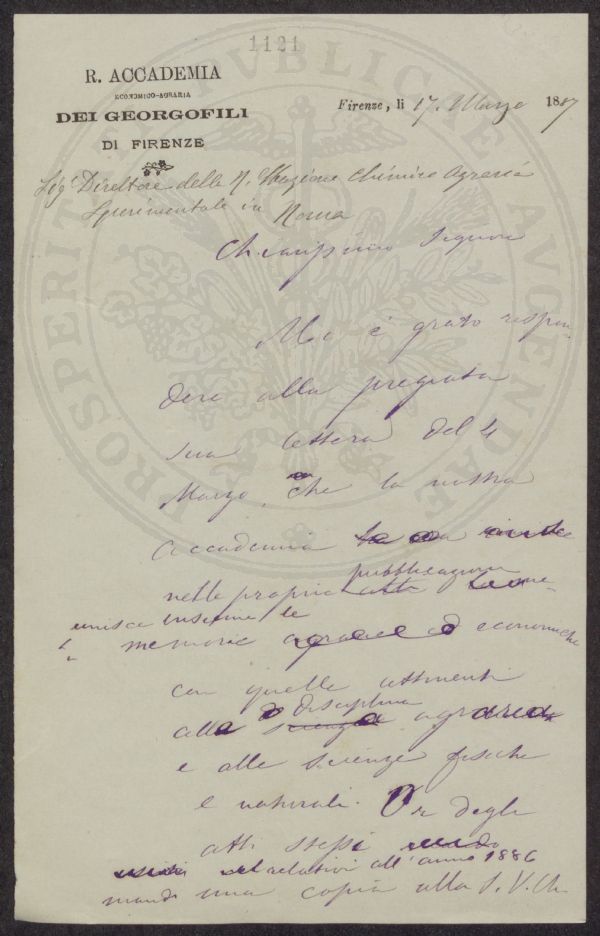 1121
R. ACCADEMIA
ECONOMICO-AGRARIA
DEI GEORGOFILI
DI FIRENZE
Firenze, li 17. Marzo 1887
Sigr Direttore della R. Stazione Chimico Agraria
Sperimentale in Roma
Chiarissimo Signore
Mi è grato rispon-
dere alla pregiata
sua lettera del 4
Marzo, che la nostra
Accademia
nelle proprie pubblicazioni
unisce insieme le
memorie agrarie ed economiche
con quelle attinenti
alle discipline
e alle scienze fisiche
e naturali. Or degli
atti stessi
relativi all'anno 1886
mando una copia alla S. V. Ch.
PROSPERITATI PUBLICAE AUGENDAE